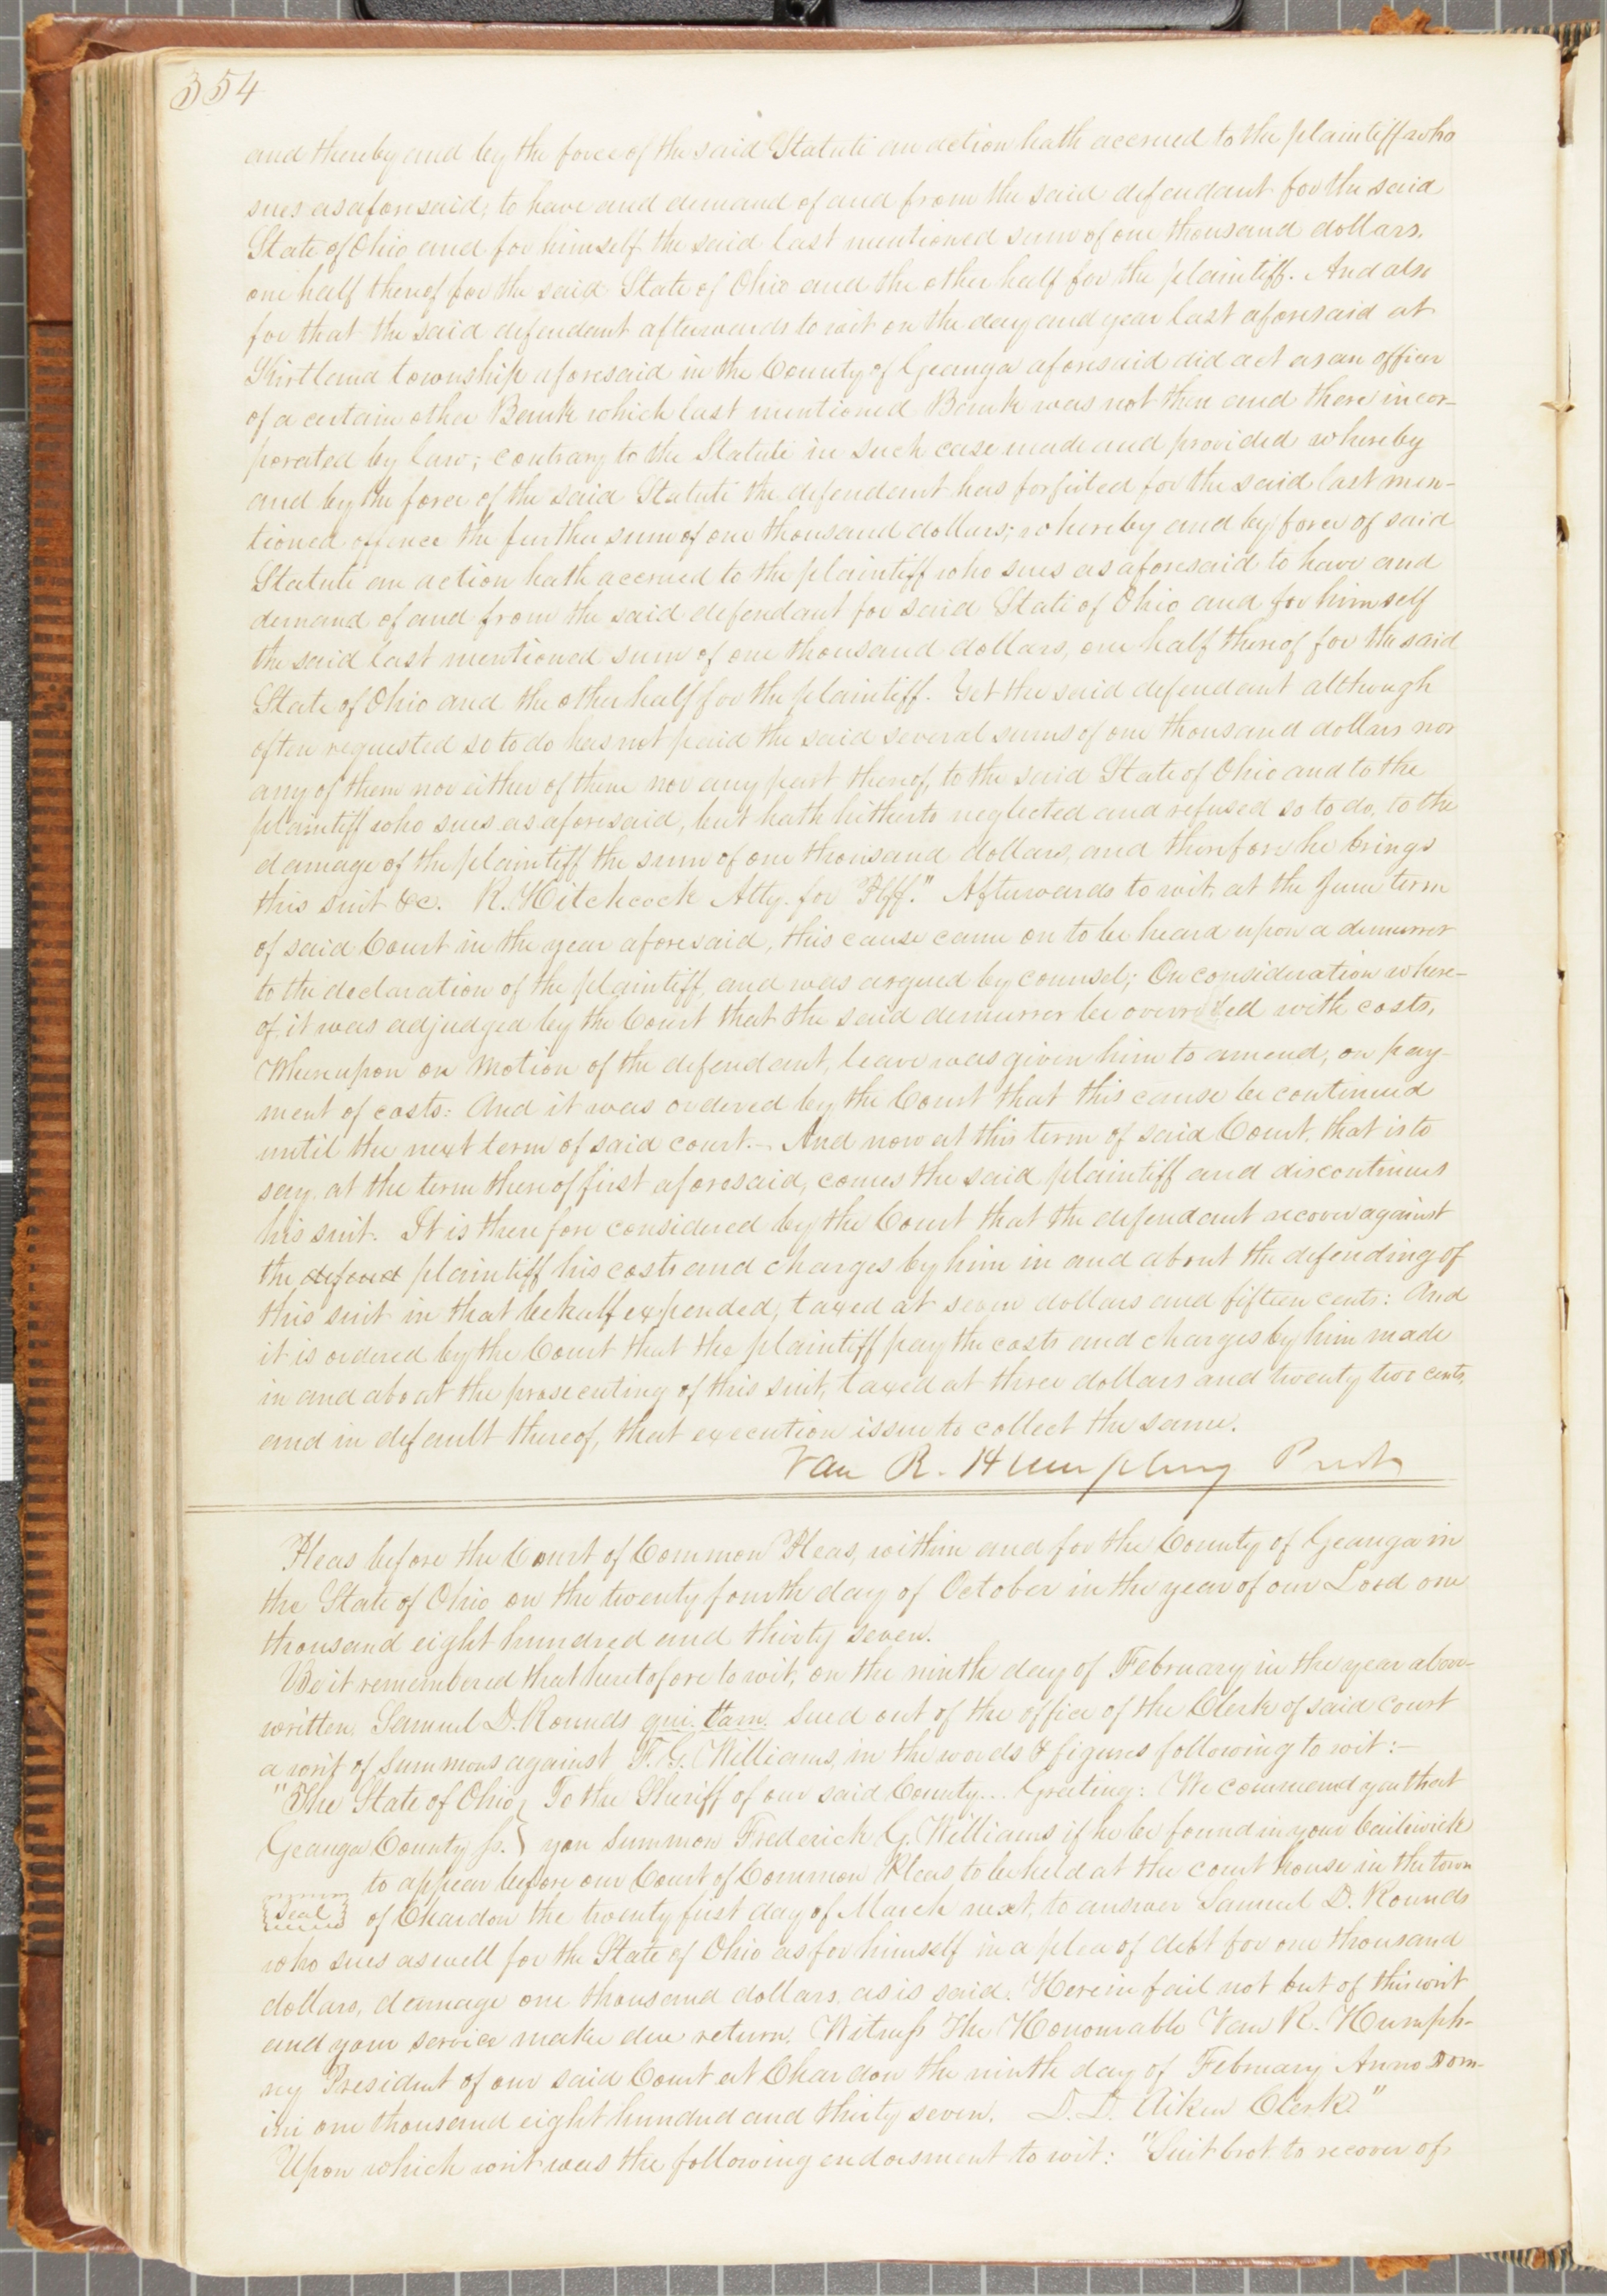 354
and thereby and by the force of the said Statute an action hath accrued to the plaintiff who
sues as aforesaid, to have and demand of and from the said defendant for the said
State of Ohio and for himself the said last mentioned sum of one thousand dollars,
one half thereof for the said State of Ohio and the other half for the plaintiff. And also
for that the said defendant afterwards to wit on the day and year last aforesaid at
Kirtland township aforesaid in the County of Geauga aforesaid did act as an officer
of a certain other Bank which last mentioned Bank was not then and there incor-
porated by law; contrary to the Statute in such case made and provided whereby
and by the force of the said Statute the defendant has forfeited for the said last men-
tioned offence the further sum of one thousand dollars; whereby and by force of said
Statute an action hath accrued to the plaintiff who sues as aforesaid to have and
demand of and from the said defendant for said State of Ohio and for himself
the said last mentioned sum of one thousand dollars, one half thereof for the said
State of Ohio and the other half for the plaintiff. Yet the said defendant although
often requested so to do has not paid the said several sums of one thousand dollars nor
any of them nor either of them nor any part thereof, to the said State of Ohio and to the
plaintiff who sues as aforesaid, but hath hitherto neglected and refused so to do, to the
damage of the plaintiff the sum of one thousand dollars, and therefore he brings
this suit &c. R. Hitchcock Atty. for Plff." Afterwards to wit, at the June term
of said Court in the year aforesaid, this cause came on to be heard upon a demurrer
to the declaration of the plaintiff, and was argued by counsel; On consideration where-
of it was adjudged by the Court that the said demurrer be overruled with costs,
Whereupon on motion of the defendant, leave was given him to amend, on pay-
ment of costs: And it was ordered by the Court that this cause be continued
until the next term of said court.- And now at this term of said Court, that is to
say, at the term thereof first aforesaid, comes the said plaintiff and discontinues
his suit. It is therefore considered by the Court that the defendant recover against
the defend plaintiff his costs and charges by him in and about the defending of
this suit in that behalf expended, taxed at seven dollars and fifteen cents: And
it is ordered by the Court that the plaintiff pay the costs and charges by him made
in and about the prosecuting of this suit, taxed at three dollars and twenty two cents,
and in default thereof, that execution issue to collect the same.
Van R. Humphrey Prest
Pleas before the Court of Common Pleas, within and for the County of Geauga in
the State of Ohio on the twenty fourth day of October in the year of our Lord one
thousand eight hundred and thirty seven.
Be it remembered that heretofore to wit, on the ninth day of February in the year above-
written, Samuel D. Rounds qui. tam. sued out of the office of the Clerk of said court
a writ of summons against F. G. Williams, in the words & figures following to wit:-
"The State of Ohio } To the Sheriff of our said County... Greeting: We command you that
Geauga County ss. } you summon Frederick G. Williams if he be found in your bailiwick
to appear before our Court of Common Pleas to be held at the court house in the town
{Seal} of Chardon the twenty first day of March next, to answer Samuel D. Rounds
who sues as well for the State of Ohio as for himself in a plea of debt for one thousand
dollars, damage one thousand dollars, as is said. Herein fail not but of this writ
and your service make due return. Witness The Honourable Van R. Humph-
rey President of our said Court at Chardon the ninth day of February Anno Dom-
ini one thousand eight hundred and thirty seven. D. D. Aiken Clerk"
Upon which writ was the following endorsment to wit: "Suit brot. to recover of